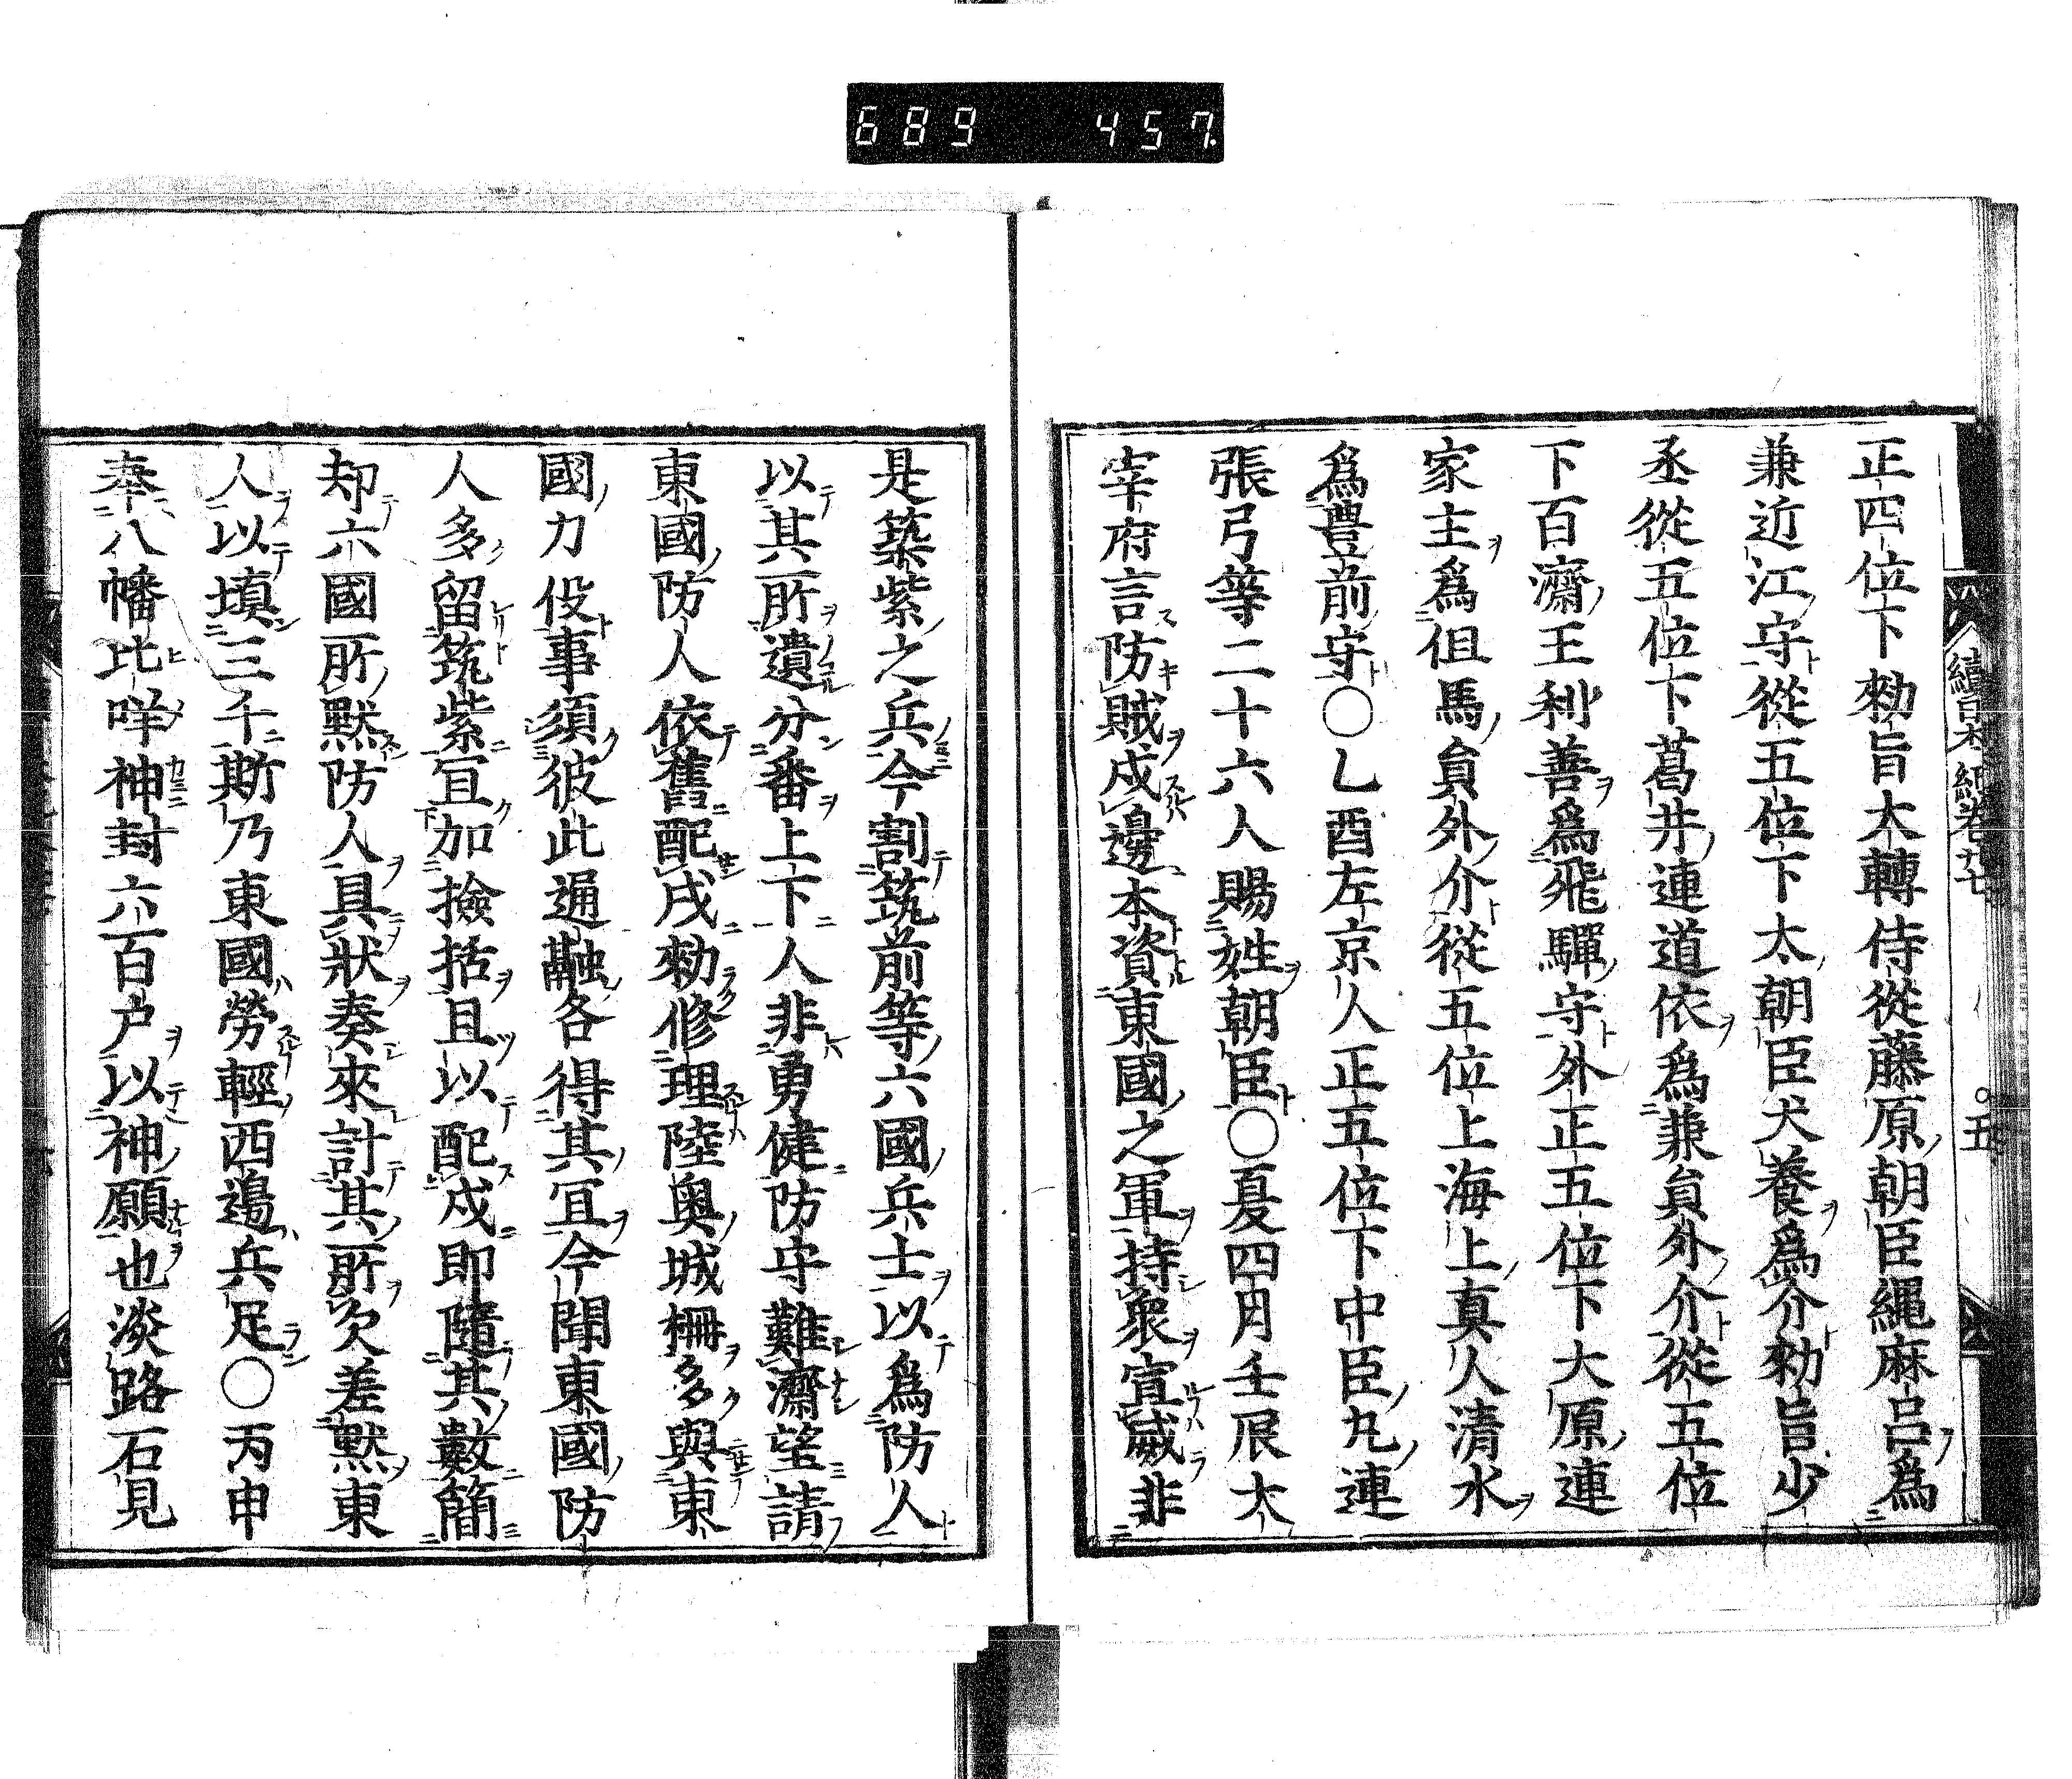 689 457.
續日本紀卷廿七
五
正四位下勑旨大輔侍從藤原朝臣繩麻呂爲
兼近江守從五位下太朝臣犬養爲介勑旨少
丞從五位下葛井連道依爲兼員外介從五位
下百濟王利善爲飛驒守外正五位下大原連
家主爲但馬員外介從五位上海上真人清水
爲豐前守〇乙酉左京人正五位下中臣丸連
張弓等二十六人賜姓朝臣〇夏四月壬辰太
宰府言防賊戍邊本資東國之軍持衆宣威非
是築紫之兵今割筑前等六國兵士以爲防人
以其所遺分番上下人非勇健防守難濟望請
東國防人依舊配戍勑修理陸奥城柵多與東
國力役事須彼此通融各得其冝今聞東國防
人多留筑紫冝加撿括且以配戍即隨其數簡
却六國所㸃防人具狀奏來計其所欠差㸃東
人以塡三千斯乃東國勞輕西邉兵足〇丙申
奉八幡比咩神封六百户以神願也淡路石見